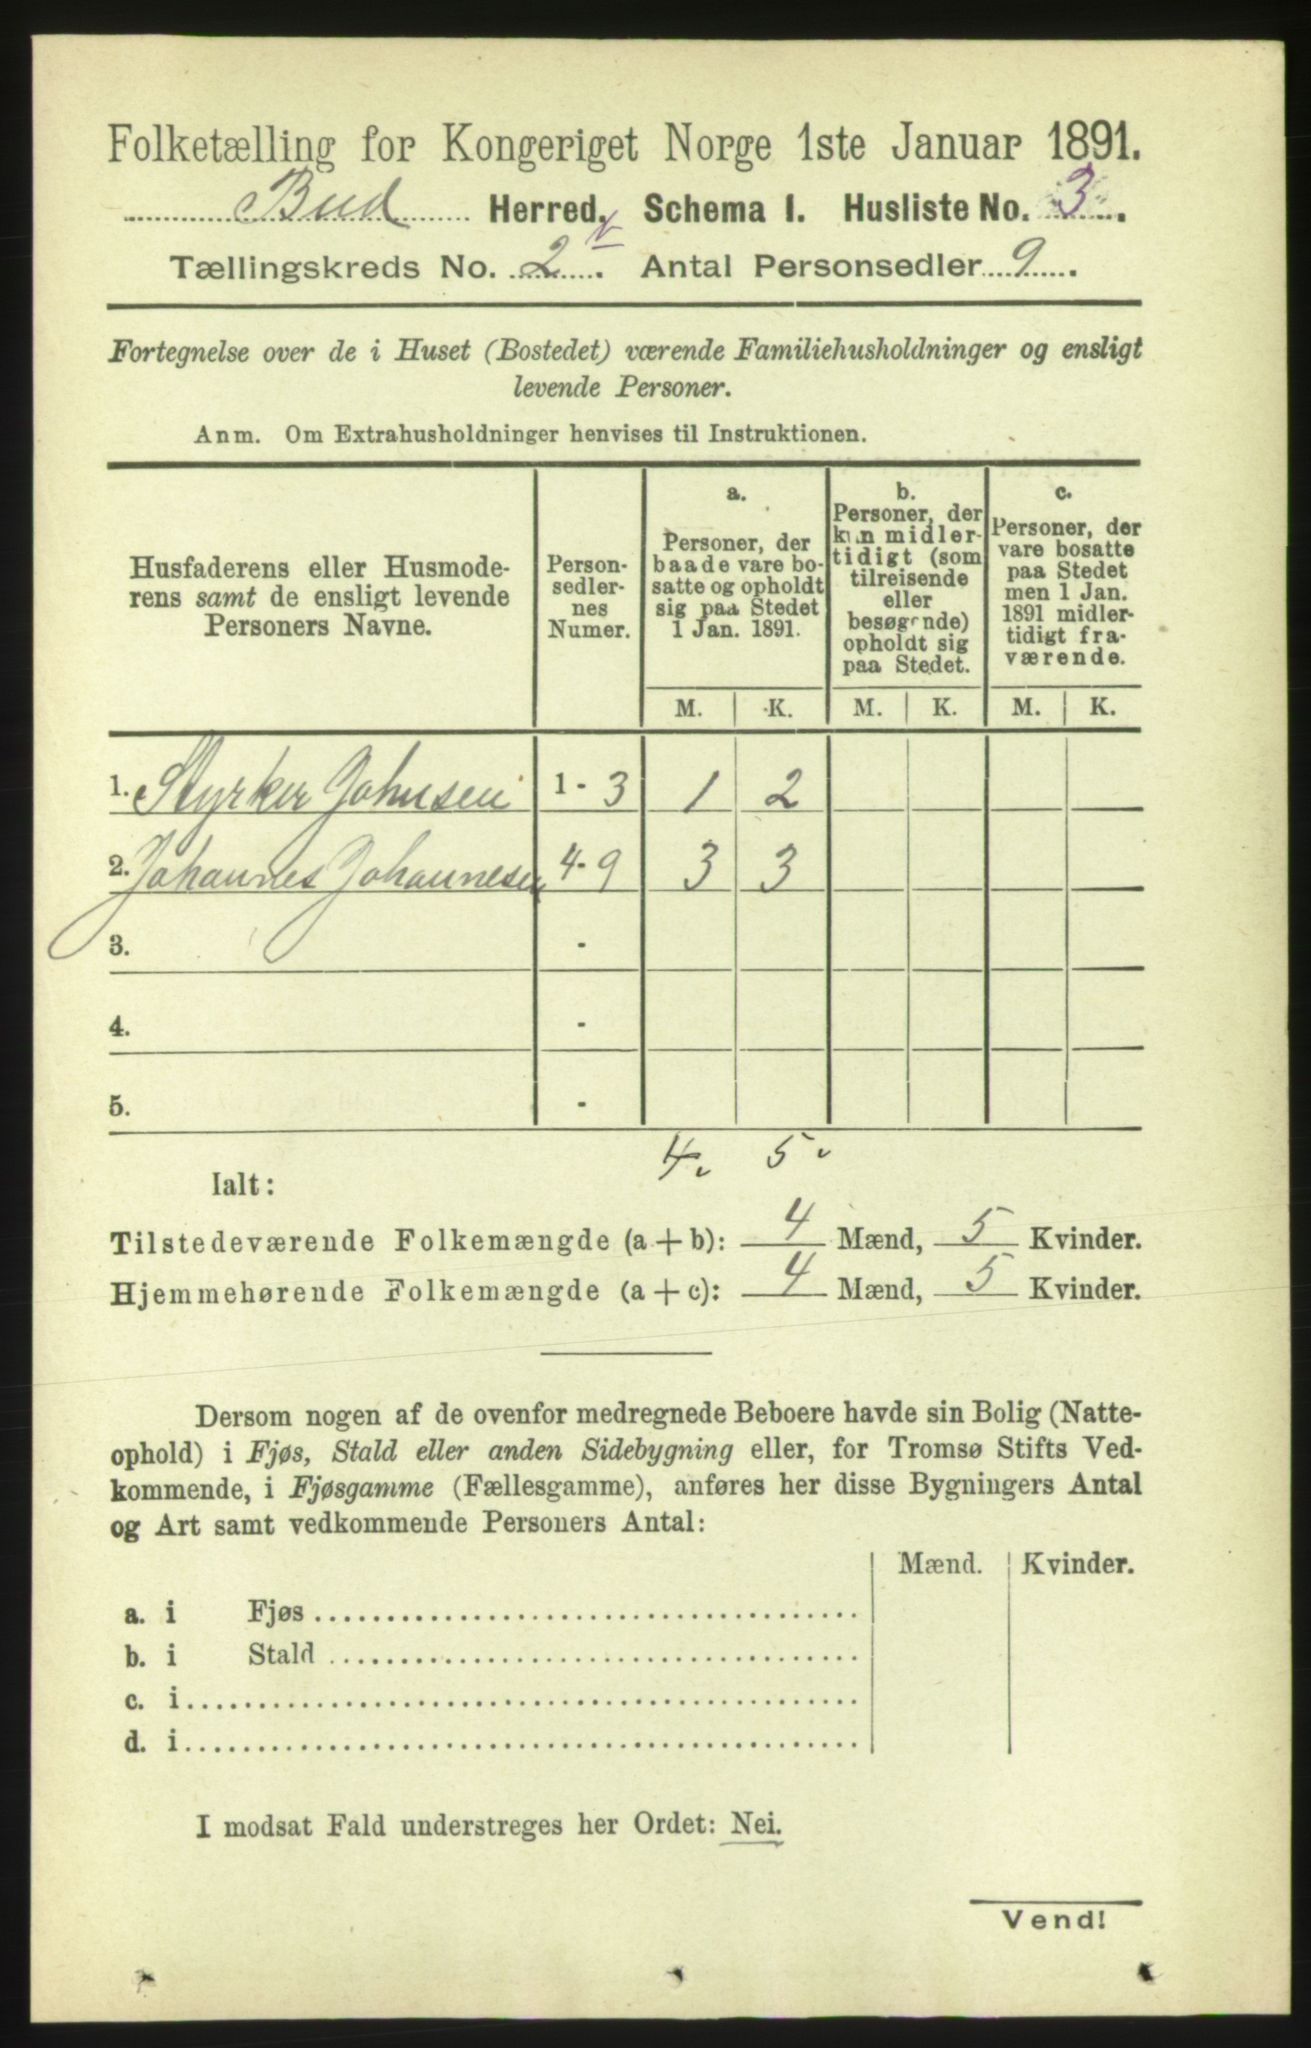 Folketælling for Kongeriget Norge 1ste Januar 1891.
Bud Herred. Schema I. Husliste No. 3.
Tællingskreds No. 2. Antal Personsedler 9.
Fortegnelse over de i Huset (Bostedet) værende Familiehusholdninger og ensligt
levende Personer.
Anm. Om Extrahusholdninger henvises til Instruktionen.
Husfaderens eller Husmode-
rens samt de ensligt levende
Personers Navne.
Person-
sedler-
nes
Numer.
a.
Personer, der
baade vare bo-
satte og opholdt
sig paa Stedet
1 Jan. 1891.
b.
Personer, der
kun midler-
tidigt (som
tilreisende
eller
besøgende)
opholdt sig
paa Stedet.
c.
Personer, der
vare bosatte
paa Stedet
men 1 Jan.
1891 midler-
tidigt fra-
værende.
M. K. M. K. M. K.
1. Styrker Johnsen 1 - 3 1 2
2. Johannes Johannesen 4 - 9 3 3
3. -
4. -
5. -
4. 5
Ialt:
Tilstedeværende Folkemængde (a + b): 4 Mænd, 5 Kvinder.
Hjemmehørende Folkemængde (a + c): 4 Mænd, 5 Kvinder.
Dersom nogen af de ovenfor medregnede Beboere havde sin Bolig (Natte-
ophold) i Fjøs, Stald eller anden Sidebygning eller, for Tromsø Stifts Ved-
kommende, i Fjøsgamme (Fællesgamme), anføres her disse Bygningers Antal
og Art samt vedkommende Personers Antal:
Mænd. Kvinder.
a. i Fjøs
b. i Stald
c. i
d. i
I modsat Fald understreges her Ordet: Nei.
Vend!